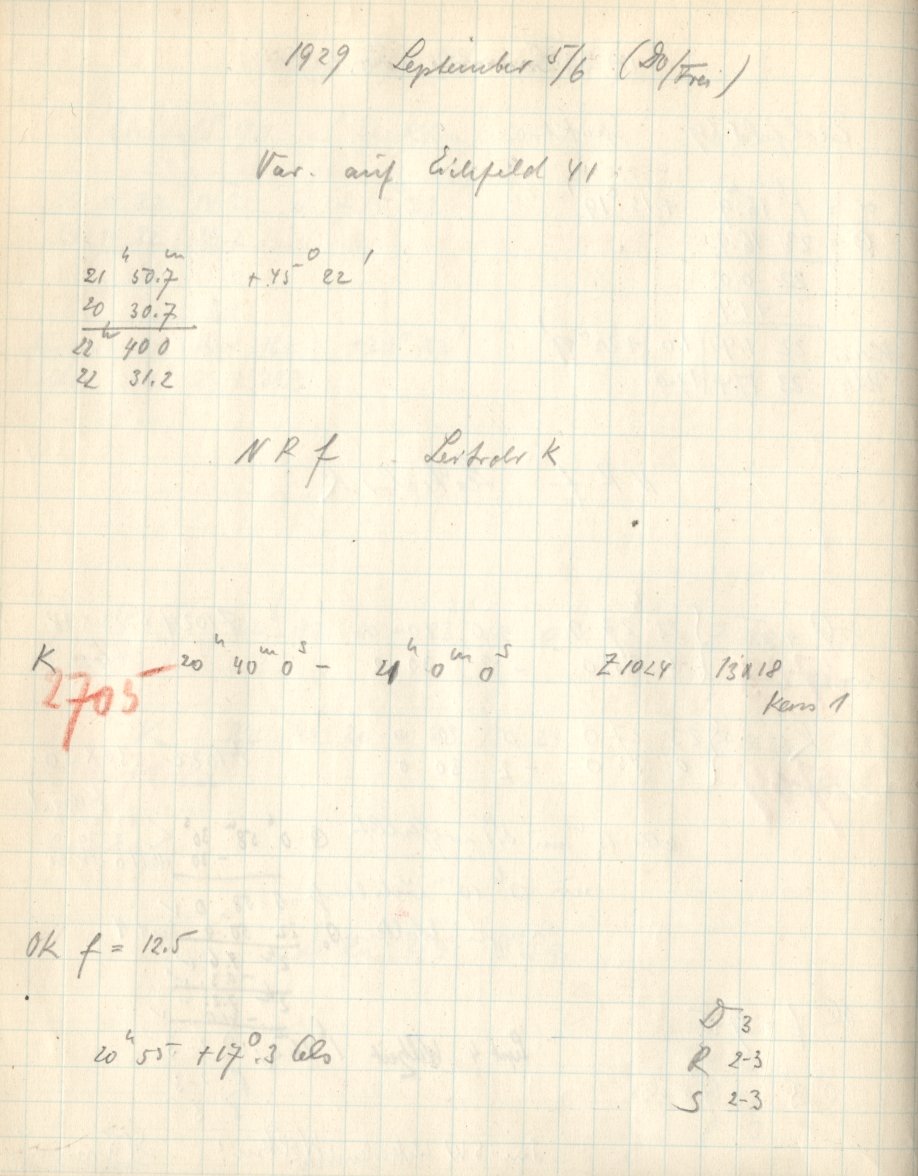 1929 September 5/6 (Do/Frei)
Var. auf Eichfeld 41
21ʰ 50.7ᵐ +45° 22'
20 30.7
22ʰ 40 0
22 31.2
N R f Leitrohr K
K 20ʰ 40ᵐ 0ˢ - 21ʰ 0ᵐ 0ˢ Z1024 13x18
2705 Kern 1
OK f = 12.5
20ʰ 55 +17°.3 Cels
D 3
R 2-3
S 2-3